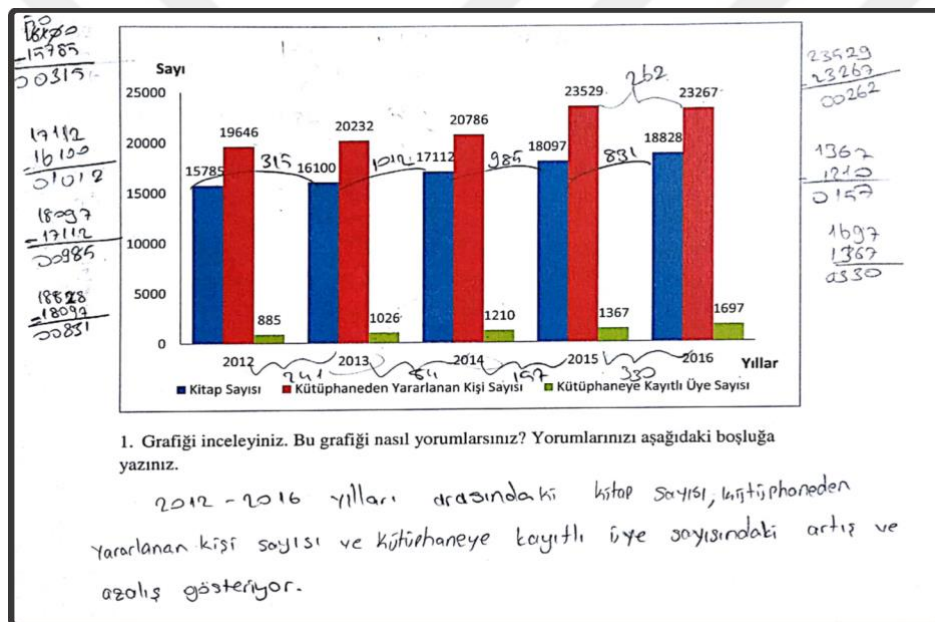 16100
-15785
00315
17112
16100
01012
18097
-17112
00985
18828
-18097
00831
Sayı
25000
20000
15000
10000
5000
0
15785
19646
885
315
16100
20232
1026
1012
17112
20786
1210
985
18097
23529
1367
831
262
18828
23267
1697
2012
2013
2014
2015
2016
Yıllar
241
157
330
Kitap Sayısı
Kütüphaneden Yararlanan Kişi Sayısı
Kütüphaneye Kayıtlı Üye Sayısı
23529
23267
00262
1367
1210
0157
1697
1367
0330
1. Grafiği inceleyiniz. Bu grafiği nasıl yorumlarsınız? Yorumlarınızı aşağıdaki boşluğa
yazınız.
2012 - 2016 yılları arasındaki kitap sayısı, kütüphaneden
yararlanan kişi sayısı ve kütüphaneye kayıtlı üye sayısındaki artış ve
azalış gösteriyor.